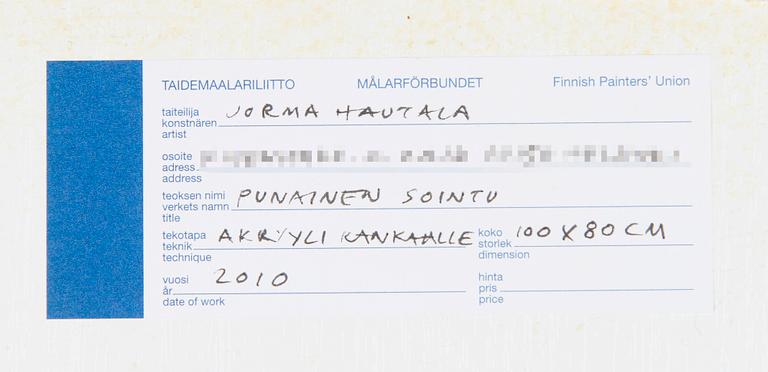 TAIDEMAALARILIITTO MÅLARFÖRBUNDET Finnish Painters' Union
taiteilija
konstnären JORMA HAUTALA
artist
osoite
adress
address
teoksen nimi
verkets namn PUNAINEN SOINTU
title
tekotapa koko
teknik AKRYYLI KANKAALLE storlek 100 X 80 CM
technique dimension
vuosi hinta
år 2010 pris
date of work price